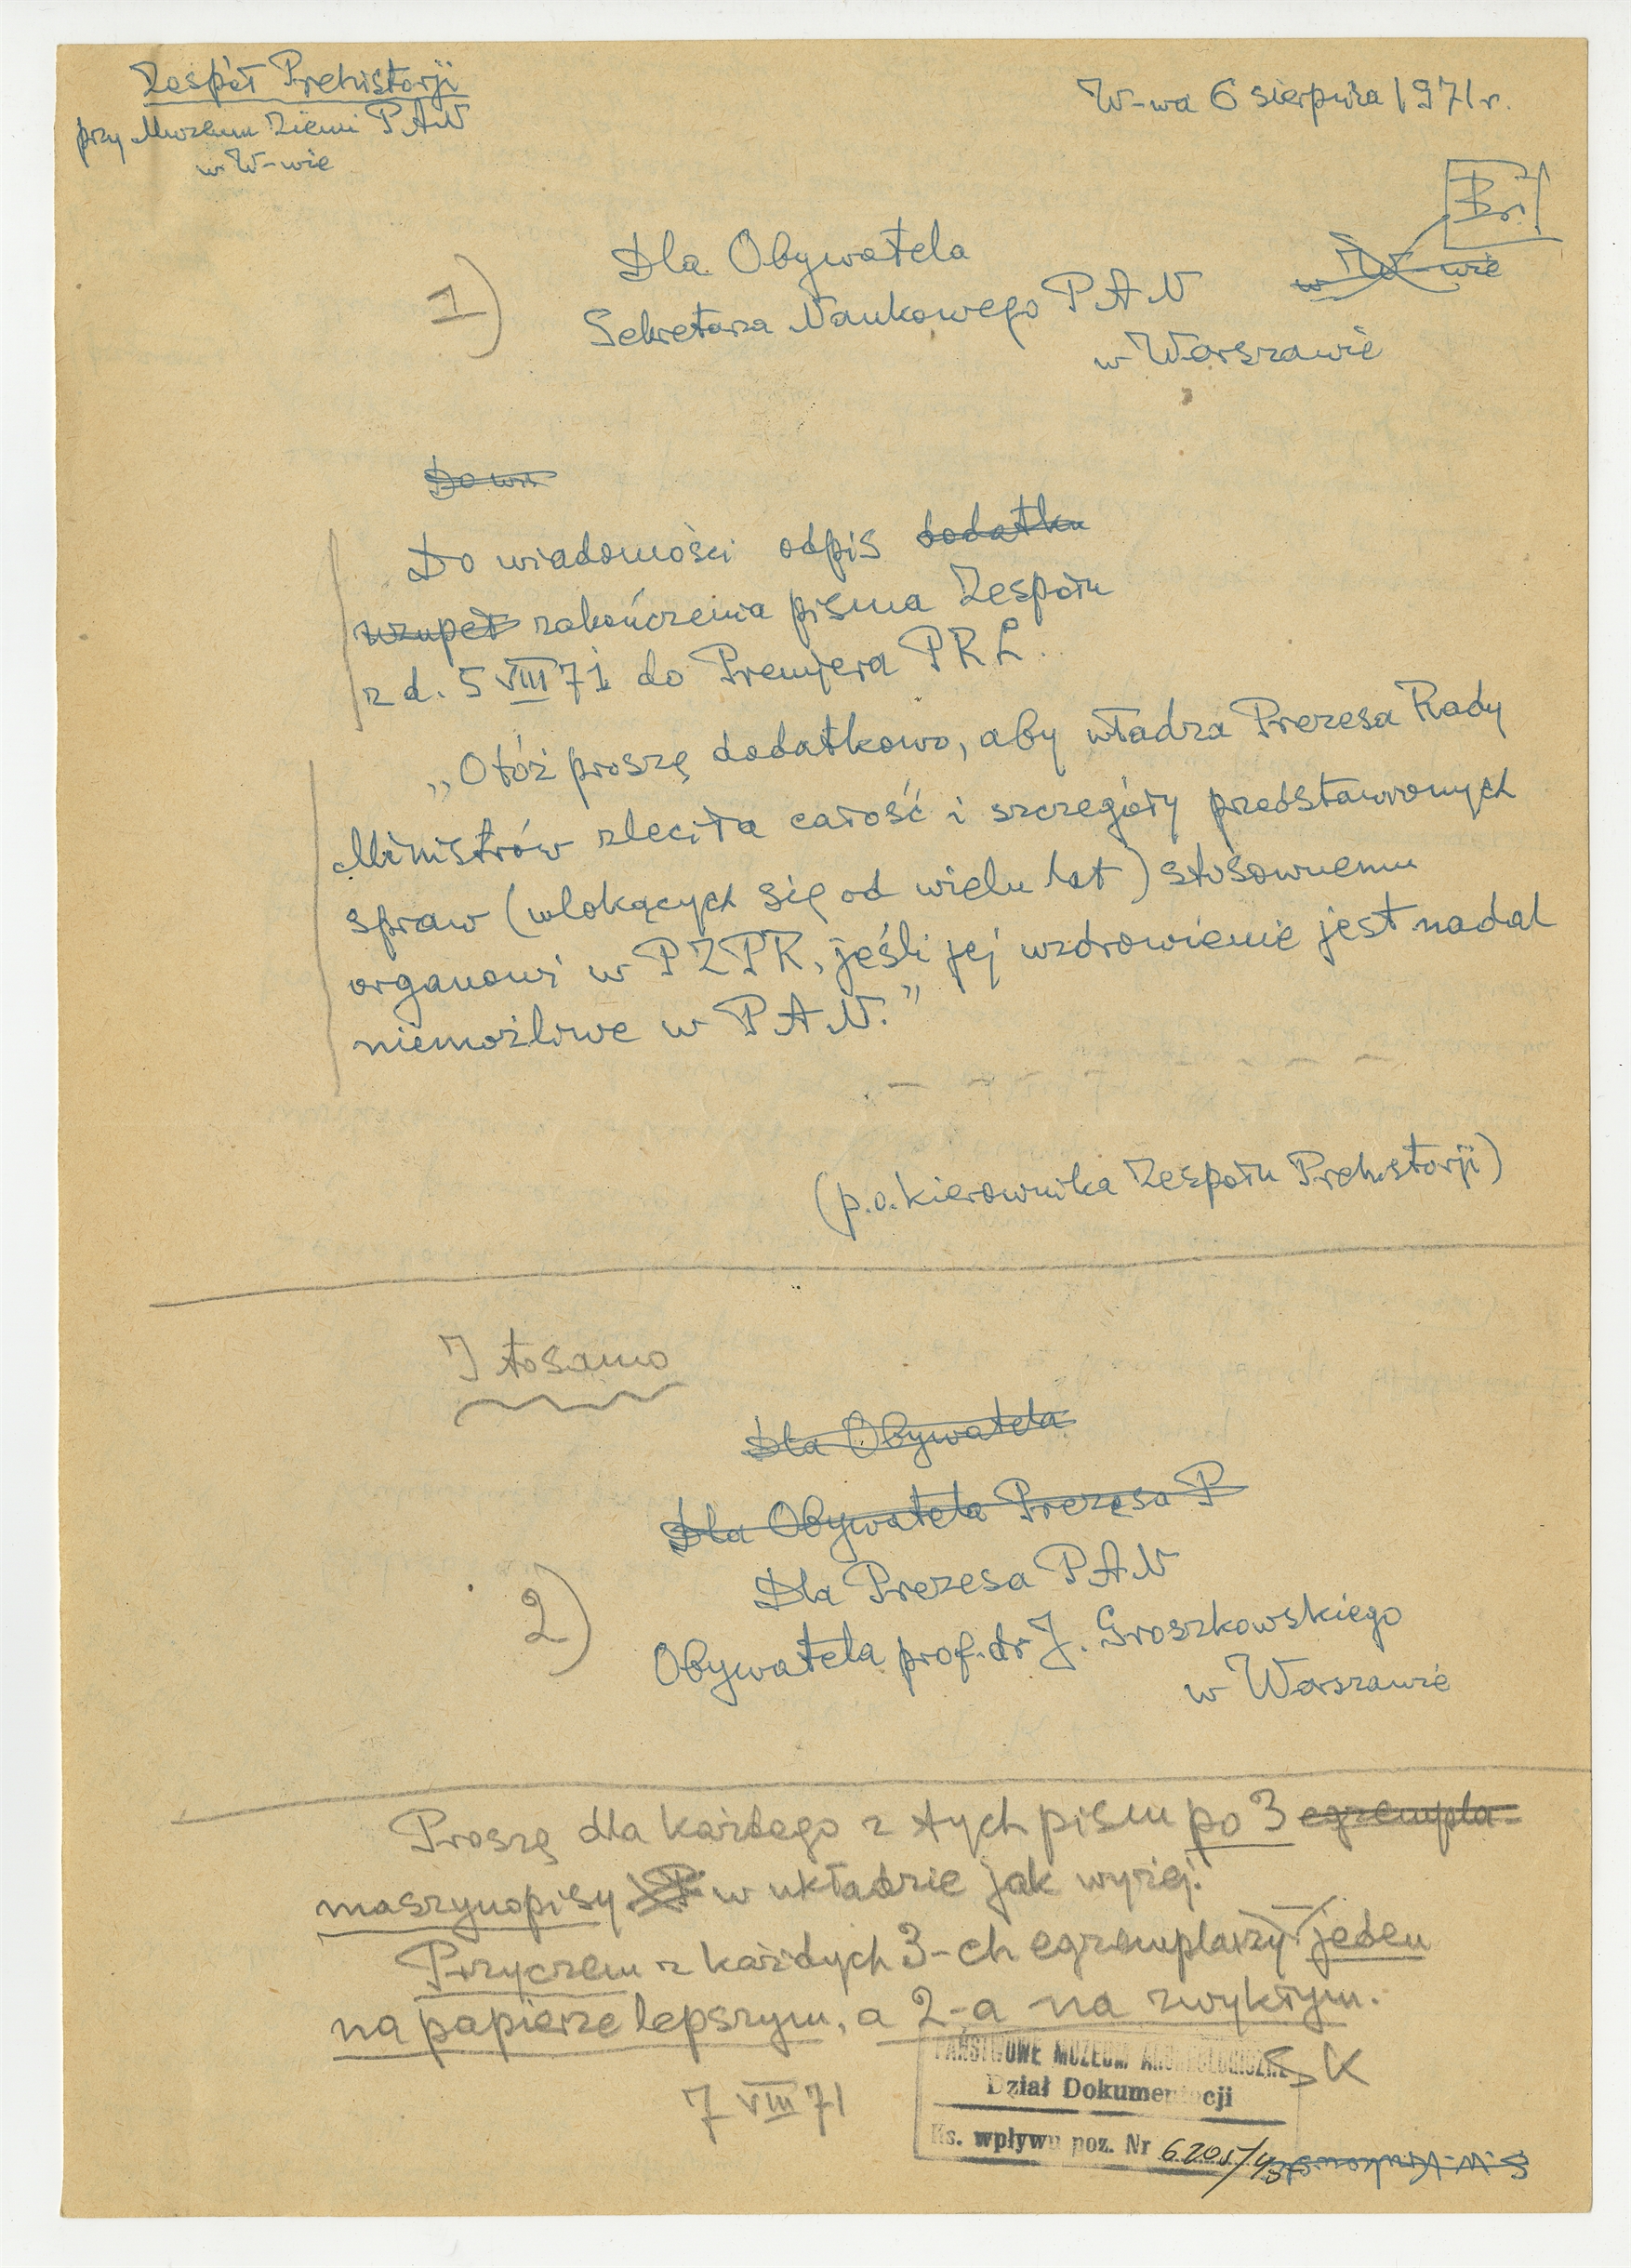 Zespół Prehistorji
przy Muzeum Ziemi PAN
w W-wie
W-wa 6 sierpnia 1971 r.
Br.
w W-wie
1)
Dla Obywatela
Sekretarza Naukowego PAN
w Warszawie
Do wia
Do wiadomości odpis dodatku
uzupeł zakończenia pisma Zespołu
z d. 5 VIII 71 do Premjera PRL.
„Otóż proszę dodatkowo, aby władza Prezesa Rady
Ministrów zleciła całość i szczegóły przedstawionych
spraw (wlokących się od wielu lat) stosownemu
organowi w PZPR, jeśli jej uzdrowienie jest nadal
niemożliwe w PAN."
(p.o. kierownika Zespołu Prehistorji)
I to samo
Dla Obywatela
Dla Obywatela Prezesa P
2)
Dla Prezesa PAN
Obywatela prof. dr J. Groszkowskiego
w Warszawie
Proszę dla każdego z tych pism po 3 egzempla-
maszynopisy w układzie jak wyżej.
Przyczem z każdych 3-ch egzemplarzy jeden
na papierze lepszym, a 2-a na zwykłym.
SK
7 VIII 71
PAŃSTWOWE MUZEUM ARCHEOLOGICZNE
Dział Dokumentacji
Ks. wpływu poz. Nr 6205/